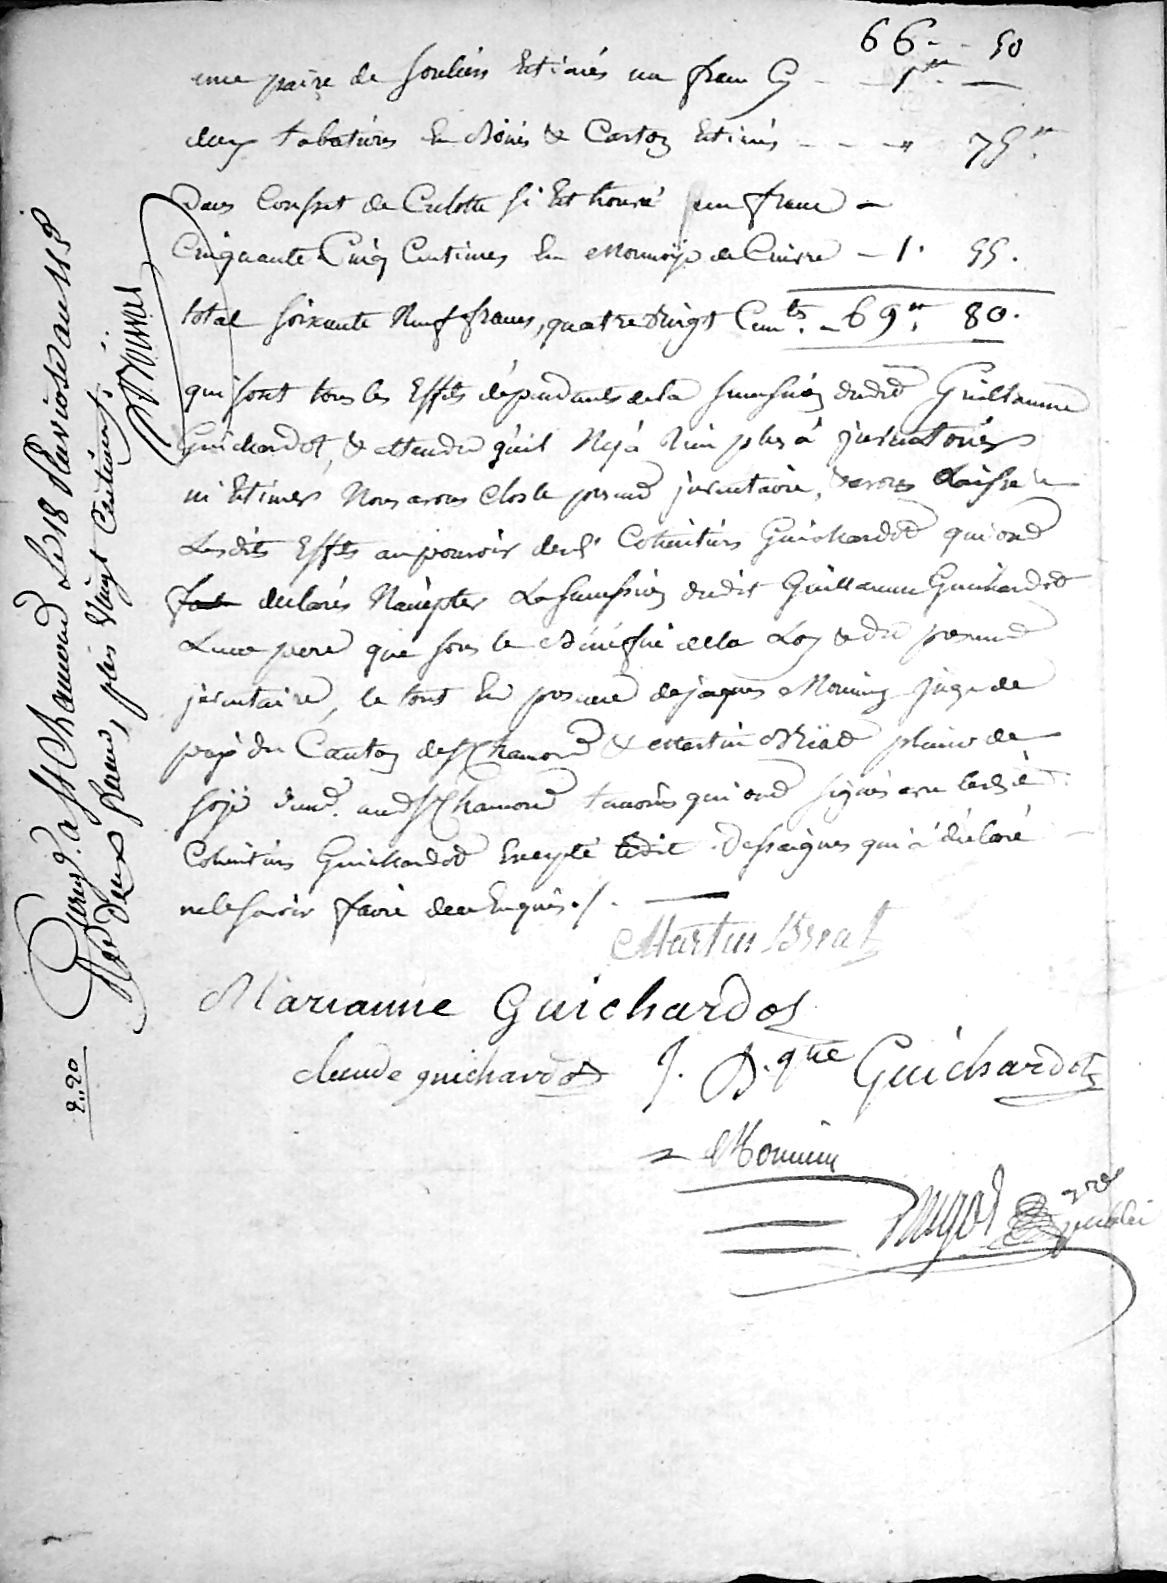 66 - - 50
une paire de souliers Estimés un franc Cy - - 1 fr. —
deux tabatières En Boüis & Carton Estimés - - - " 75 "
Dans Lousset de Culotte si Est trouvé un franc -
Cinquante Cinq Centimes En Monnoÿe de Cuivre - 1. 55.
total soixante Neuf francs, quatre Vingt Cent.es - 69 " 80.
qui sont tous les Effets dépendants de la succession dudit Guillaume
Guichardot, & attendu qu'il N'y à Rien plus à juventorier
ni Estimer Nous avons Clos le présend juventaire, & avons Laissé
Lesdits Effets au pouvoir desd. Cohéritiers Guichardot qui ond
déclarés N'accepter La succession dudit Guillaume Guichardot
Leur pere que sous le Bénéfice de la Loy & du présend
juventaire, le tout En présence de jaques Monniny juge de
paix du Canton de St Chamond & Martin Briat plieur de
soÿe dem.t aud St Chamond temoins qui ond signés avec lesd.
Cohéritiers Guichardot Excepté ledit Dessaignes qui à déclaré
ne le savoir faire de ce Enquis ./.
Martin Briat
Marianne Guichardot
claude guichardot J. D.que Guichardot
Monnin
public
Enreg. à St Chamond Le 18 Pluviose an 11 f°
Reçu Deux francs, plus Vingt Centimes.
2..20